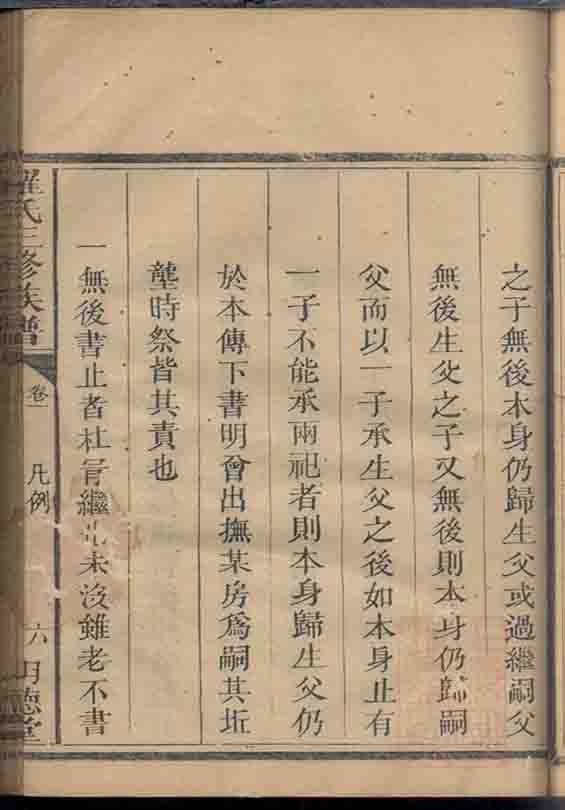 之子無後本身仍歸生父或過繼嗣父
無後生父之子又無後則本身仍歸嗣
父而以一子承生父之後如本身止有
一子不能承兩祀者則本身歸生父仍
於本傳下書明曾出撫某房為嗣其坵
壟時祭皆其責也
一無後書止者杜冒繼也未沒雖老不書
羅氏三修族譜
卷一
凡例
六
明德堂